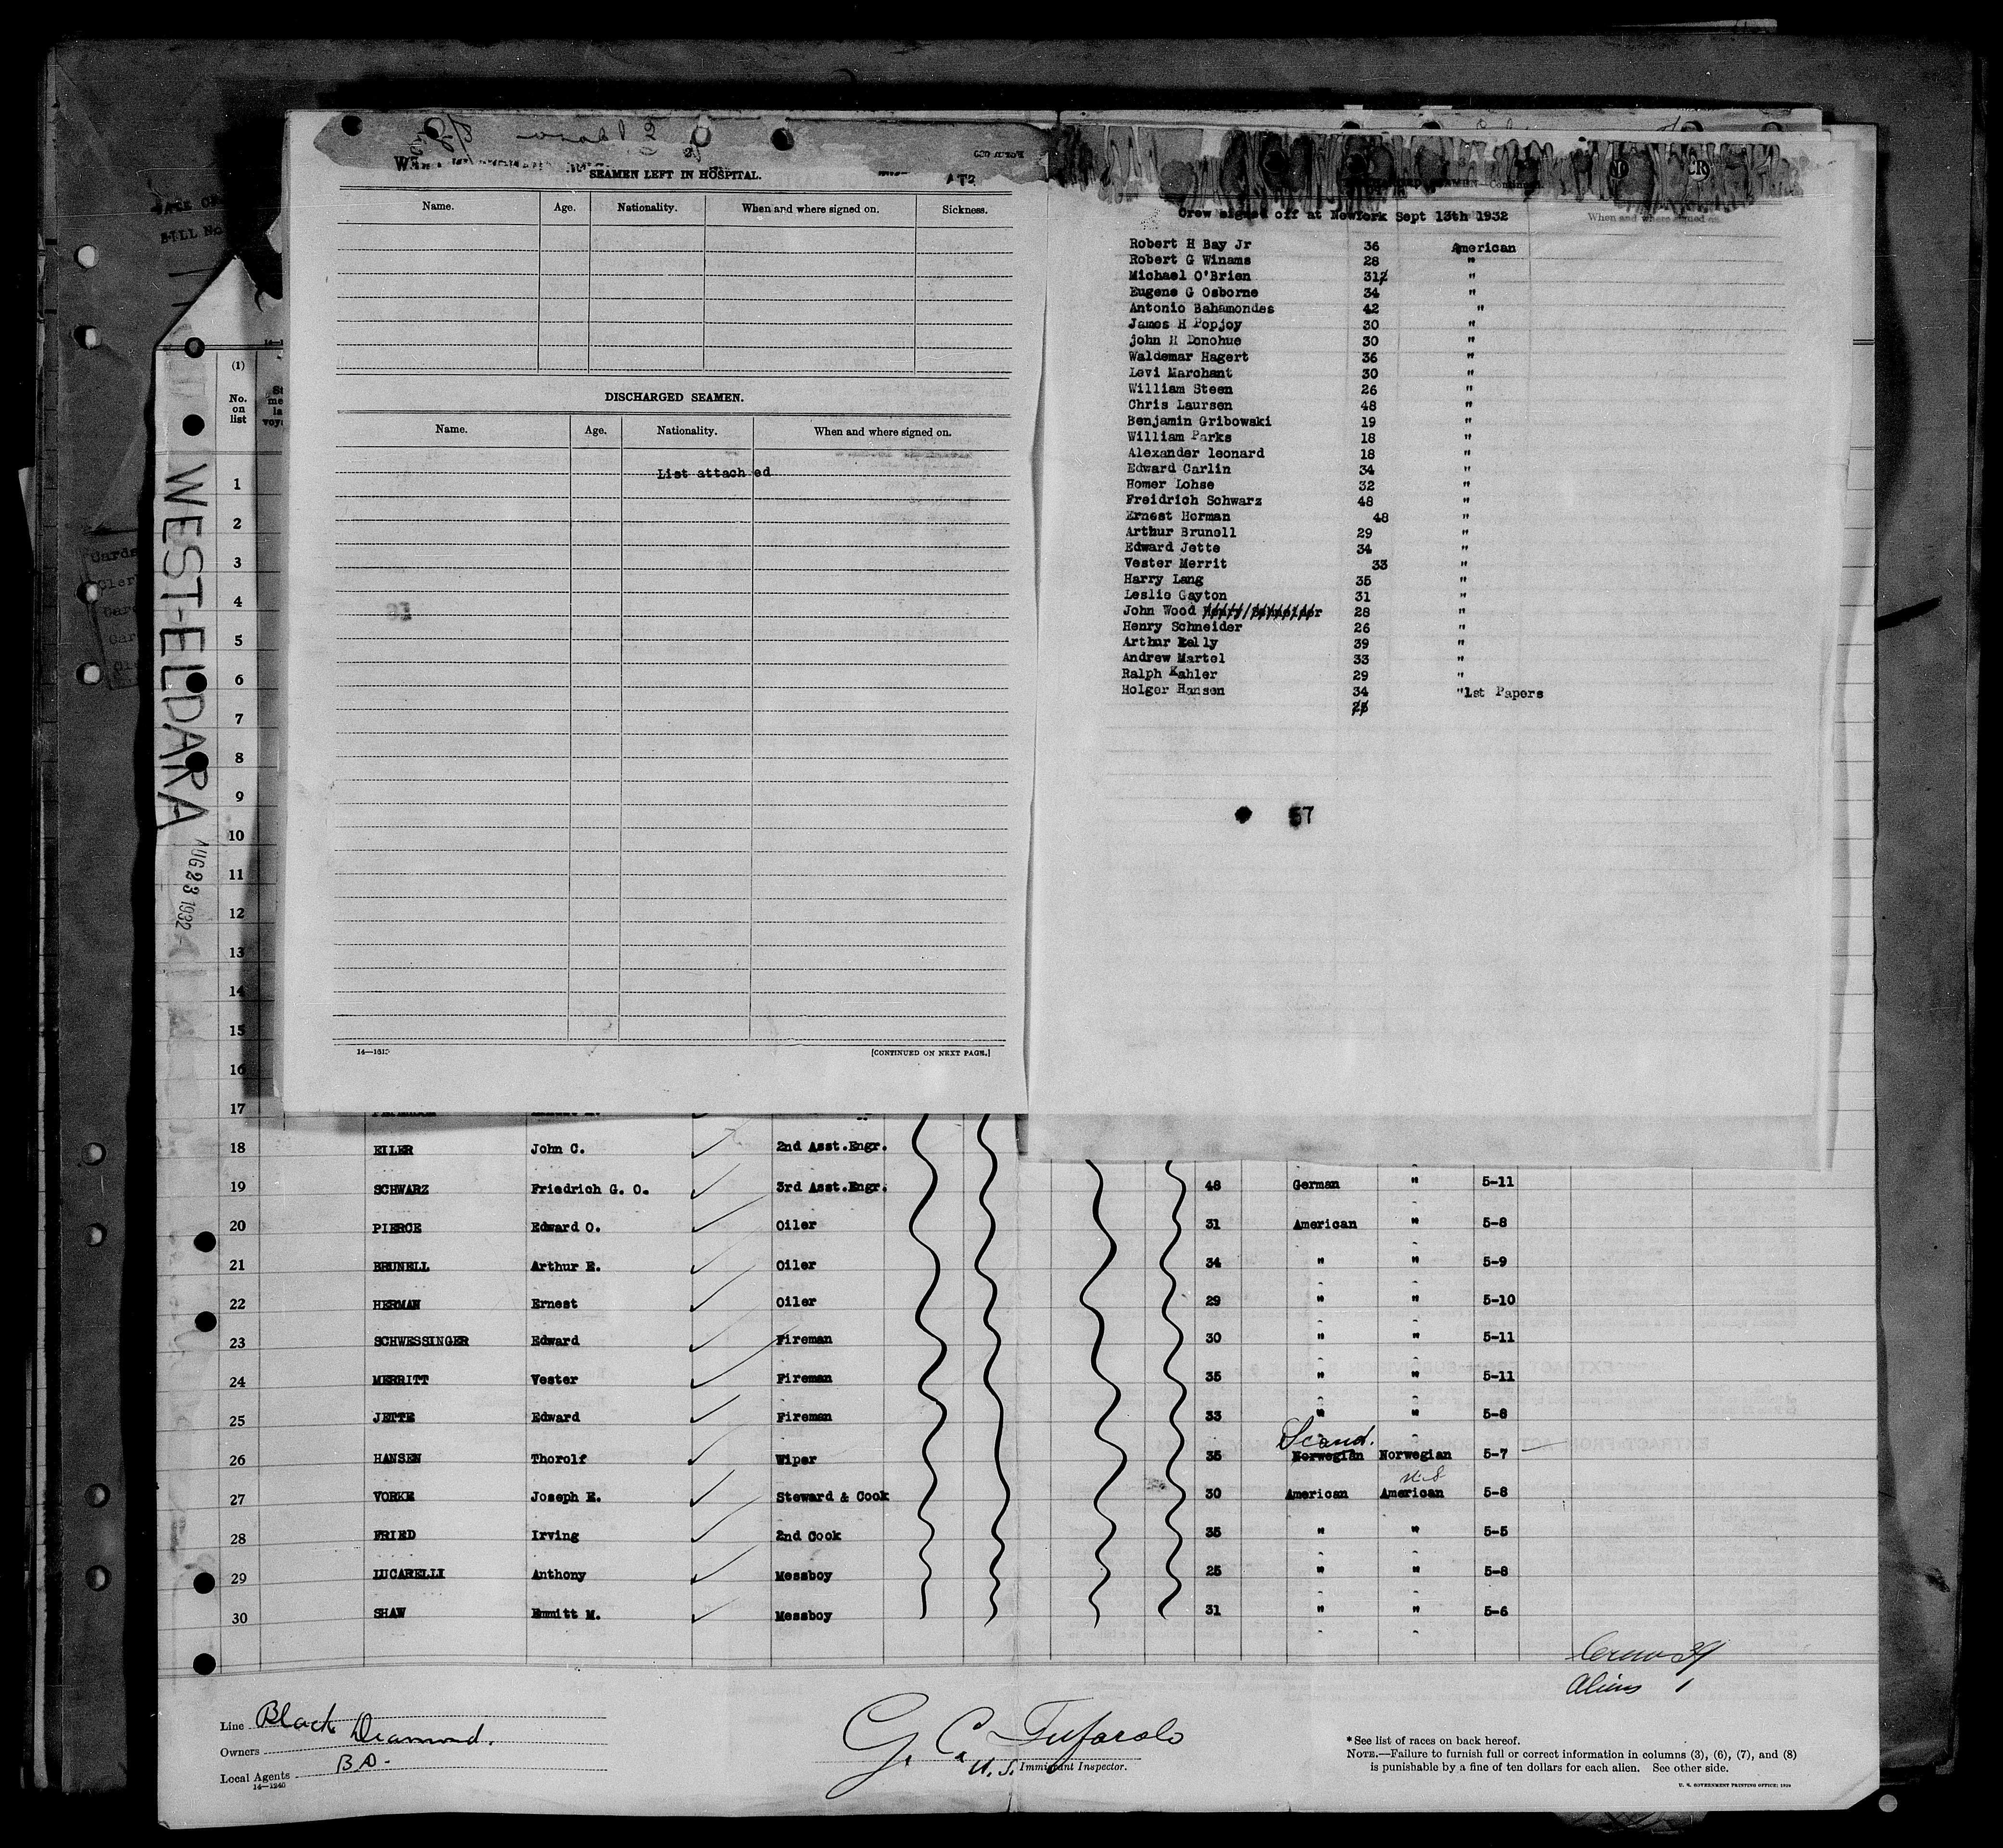 SEAMEN LEFT IN HOSPITAL.
Name. Age. Nationality. When and where signed on. Sickness.
DISCHARGED SEAMEN.
Name. Age. Nationality. When and where signed on.
List attached
14—1613
[CONTINUED ON NEXT PAGE.]
Crew signed off at NewYork Sept 13th 1932
When and where signed on.
Robert H Bay Jr 36 American
Robert G Winams 28 "
Michael O'Brien 31 "
Eugene G Osborne 34 "
Antonio Bahamondes 42 "
James H Popjoy 30 "
john H Donohue 30 "
Waldemar Hagert 36 "
Levi Marchant 30 "
William Steen 26 "
Chris Laursen 48 "
Benjamin Gribowski 19 "
William Parks 18 "
Alexander leonard 18 "
Edward Carlin 34 "
Homer Lohse 32 "
Freidrich Schwarz 48 "
Ernest Herman 48 "
Arthur Brunell 29 "
Edward Jette 34 "
Vester Merrit 33 "
Harry Lang 35 "
Leslie Gayton 31 "
John Wood Henry Schneider 28 "
Henry Schneider 26 "
Arthur Kelly 39 "
Andrew Martel 33 "
Ralph Kahler 29 "
Holger Hansen 34 "1st Papers
57
WEST-ELDARA
AUG 23 1932
(1)
No. on list
1
2
3
4
5
6
7
8
9
10
11
12
13
14
15
16
17
18 EILER John C. 2nd Asst.Engr.
19 SCHWARZ Friedrich G. O. 3rd Asst.Engr. 48 German " 5-11
20 PIERCE Edward O. Oiler 31 American " 5-8
21 BRUNELL Arthur E. Oiler 34 " " 5-9
22 HERMAN Ernest Oiler 29 " " 5-10
23 SCHWESSINGER Edward Fireman 30 " " 5-11
24 MERRITT Vester Fireman 35 " " 5-11
25 JETTE Edward Fireman 33 " " 5-8
Scand.
26 HANSEN Thorolf Wiper 35 Norwegian Norwegian 5-7
U.S
27 VORKE Joseph E. Steward & Cook 30 American American 5-8
28 FRIED Irving 2nd Cook 35 " " 5-5
29 LUCARELLI Anthony Messboy 25 " " 5-8
30 SHAW Emmitt M. Messboy 31 " " 5-6
Crew 39
Aliens 1
Line Black Diamond.
Owners
Local Agents B D.
14—1240
G. C. Tufarolo
U. S. Immigrant Inspector.
* See list of races on back hereof.
NOTE.—Failure to furnish full or correct information in columns (3), (6), (7), and (8)
is punishable by a fine of ten dollars for each alien. See other side.
U. S. GOVERNMENT PRINTING OFFICE: 1929